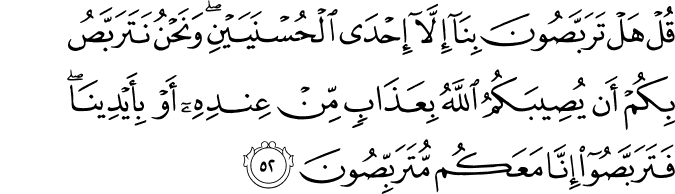 قُلْ هَلْ تَرَبَّصُونَ بِنَآ إِلَّآ إِحْدَى ٱلْحُسْنَيَيْنِ ۖ وَنَحْنُ نَتَرَبَّصُ
بِكُمْ أَن يُصِيبَكُمُ ٱللَّهُ بِعَذَابٍ مِّنْ عِندِهِۦٓ أَوْ بِأَيْدِينَا ۖ
فَتَرَبَّصُوٓا۟ إِنَّا مَعَكُم مُّتَرَبِّصُونَ ٥٢